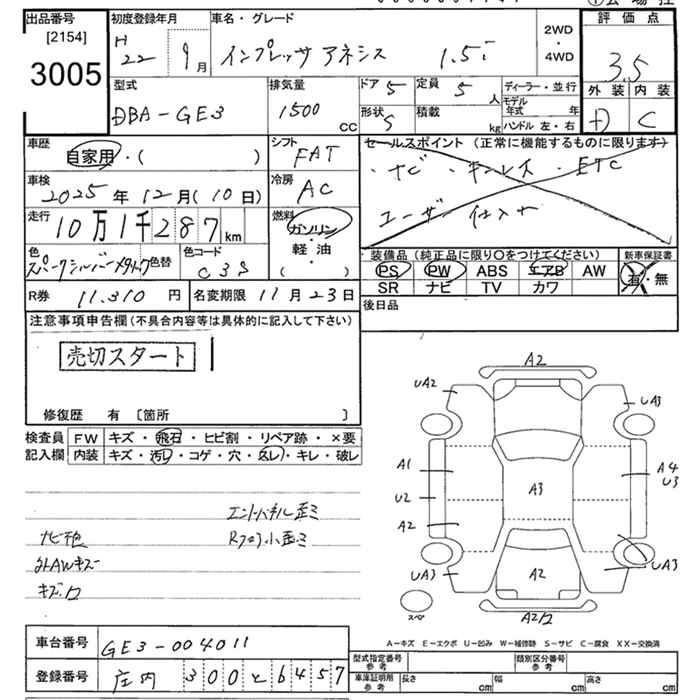 出品番号
[2154]
3005
初度登録年月
H 22 9月
車名・グレード
インプレッサ アネシス 1.5i
2WD
・
4WD
評価点
3.5
外装 内装
D C
型式
DBA-GE3
排気量
1500 CC
ドア 5
定員 5 人
形状 S
積載 kg
ディーラー・並行
モデル年式 年
ハンドル 左・右
車歴
自家用・( )
シフト
FAT
車検
2025年 12月(10日)
冷房
AC
走行
10万1千287km
燃料
ガソリン・軽油
( )
色
スパークシルバーメタリック
色替
色コード
C3S
R券 11,310円
名変期限 11月23日
セールスポイント (正常に機能するものに限ります)
・ナビ・キーレス・ETC
ユーザー仕入サ
装備品(純正品に限り○をつけてください)
PS PW ABS エアB AW
SR ナビ TV カワ
新車保証書
有・無
後日品
注意事項申告欄(不具合内容等は具体的に記入して下さい)
売切スタート
修復歴 有 [箇所 ]
検査員記入欄
FW キズ・飛石・ヒビ割・リペア跡・×要
内装 キズ・汚レ・コゲ・穴・スレ・キレ・破レ
エンドパネル歪ミ
Rフロア小歪ミ
外AWキズ
A2
UA2
UA3
A1
A4
U3
U2
A3
A2
UA3
A2
UA3
スペア
A2/2
A-キズ E-エクボ U-凹み W-補修跡 S-サビ C-腐食 XX-交換済
車台番号 GE3-004011
登録番号 庄内 300 と 6457
型式指定番号
参考
類別区分番号
参考
車庫証明用
参考
長さ cm 幅 cm 高さ cm